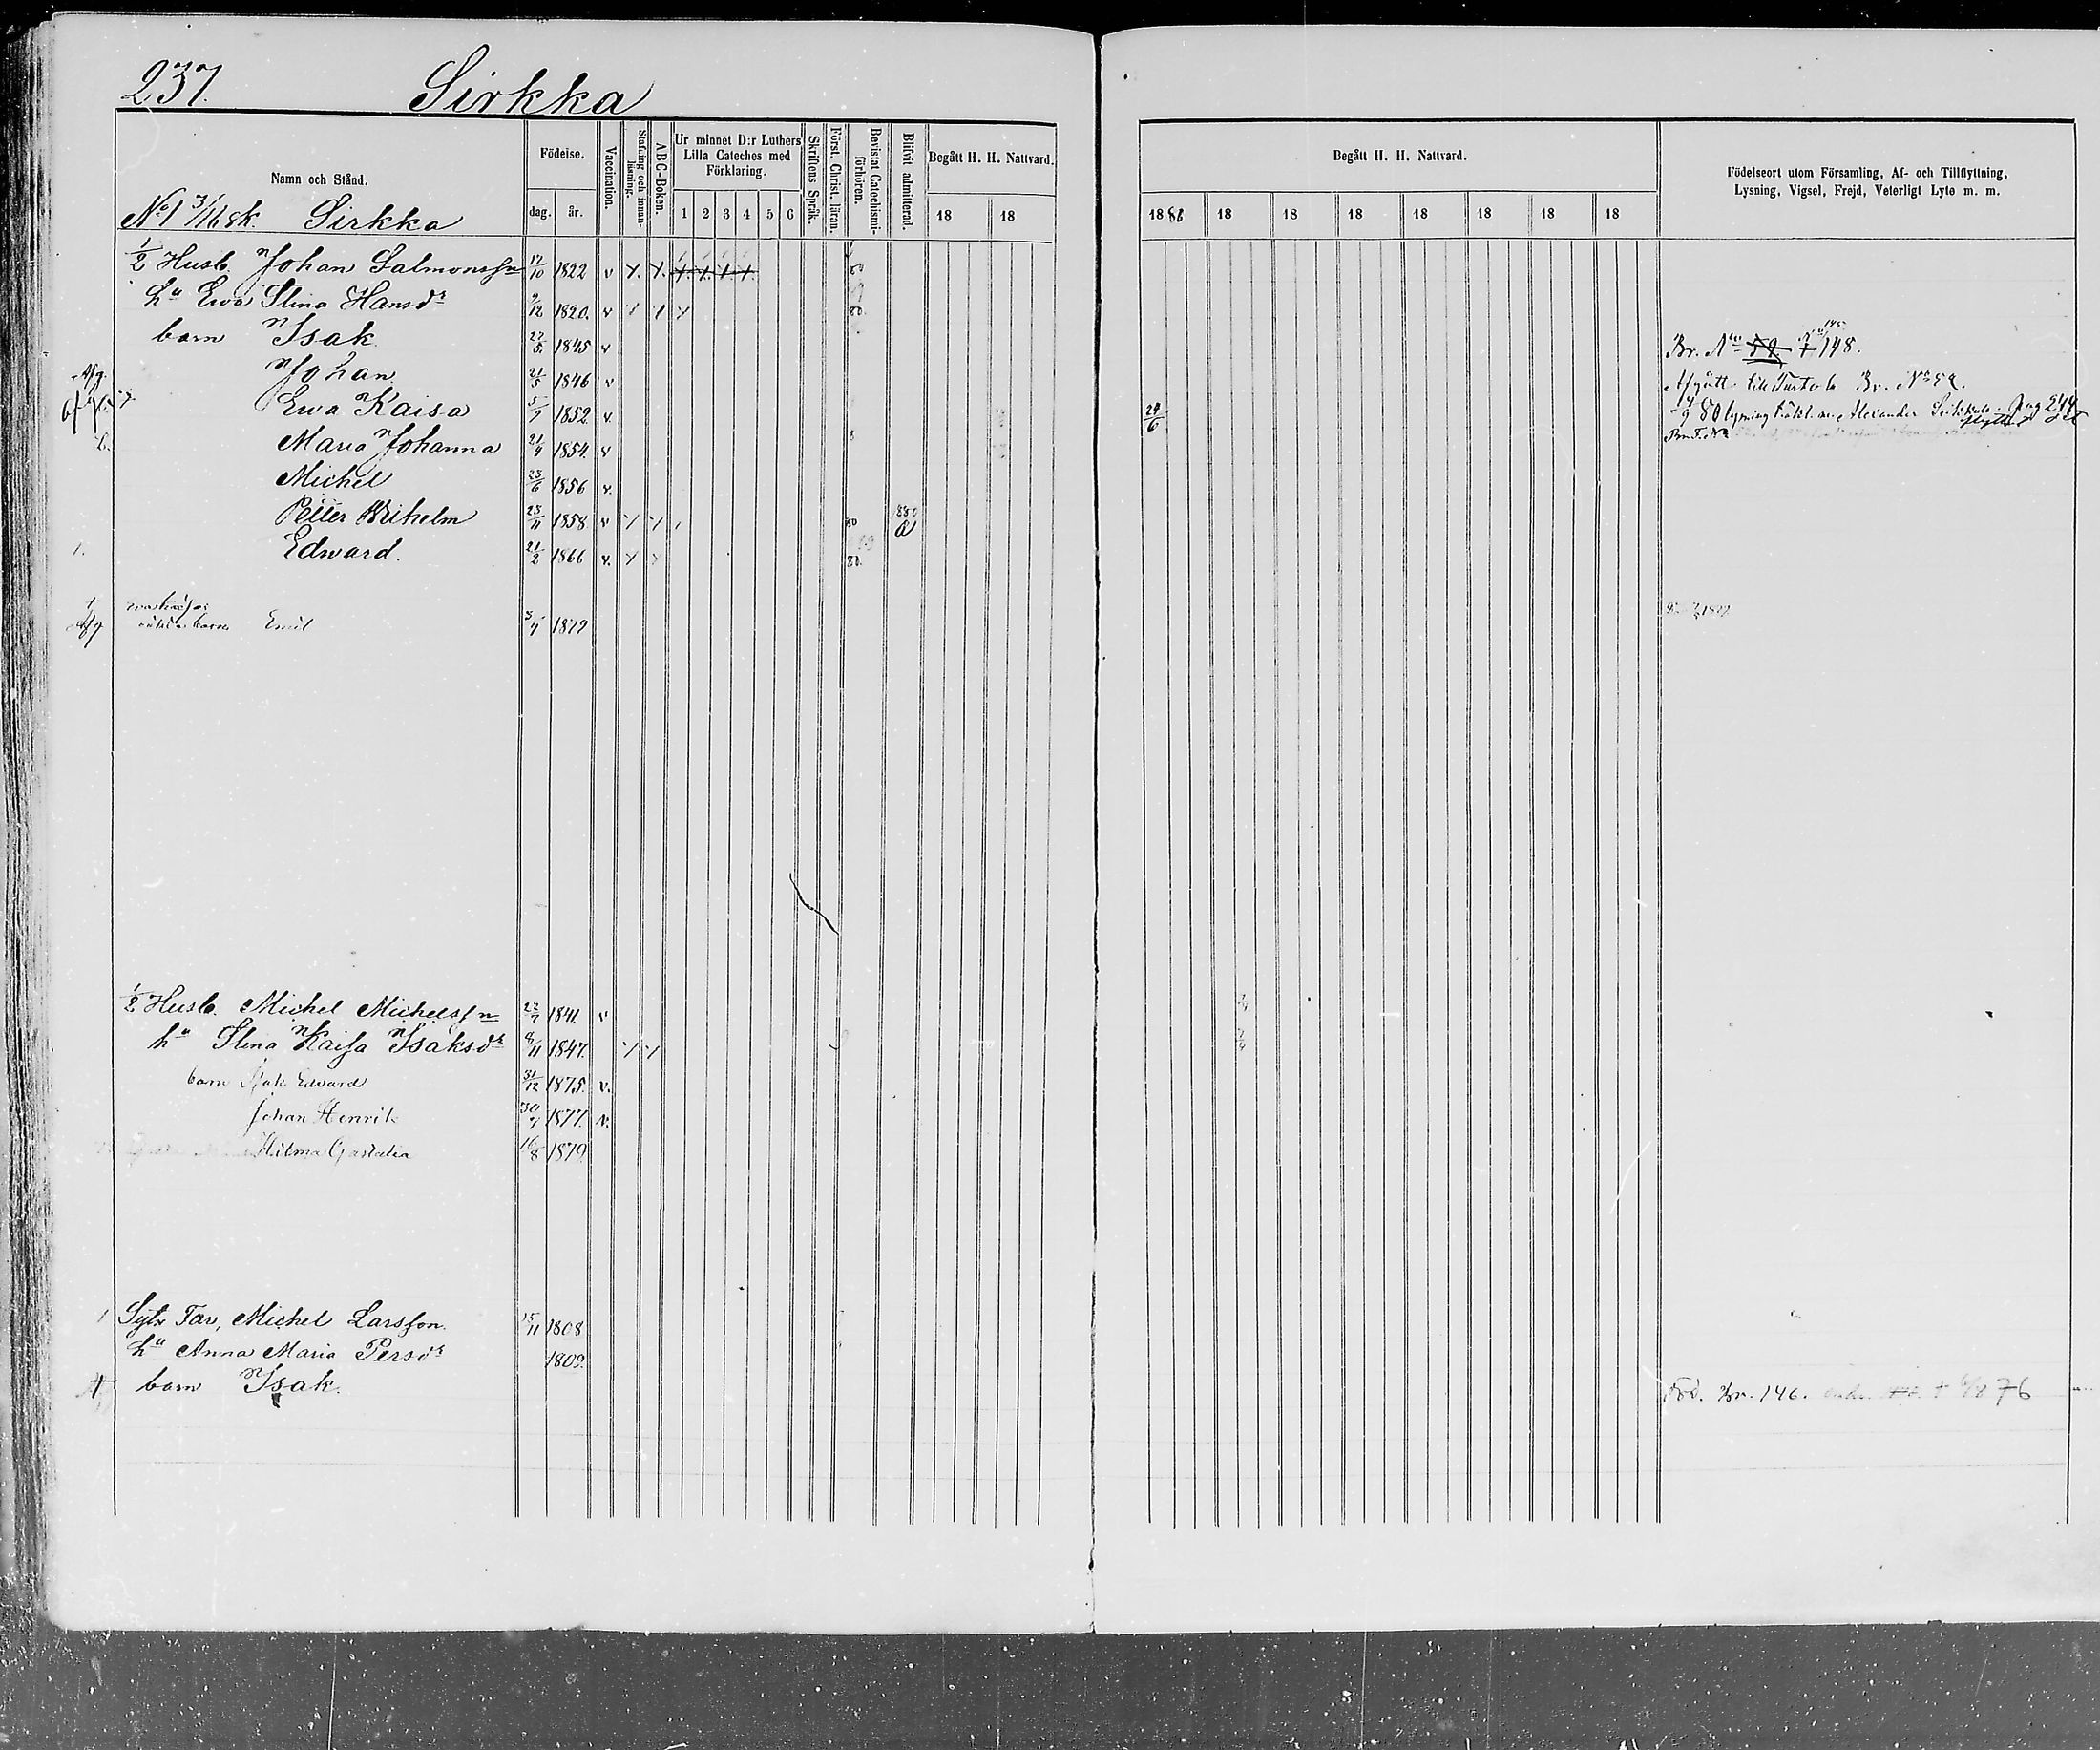 237. Sirkka
Namn och Stånd.
Födelse.
dag. år.
Vaccination.
Stafning och innan-läsning.
ABC-Boken.
Ur minnet D:r Luthers
Lilla Cateches med
Förklaring.
1 2 3 4 5 6
Skriftens Språk.
Först. Christ. läran.
Bevistat Catechismi-förhören.
Blifvit admitterad.
Begått H. H. Nattvard.
18 18
Begått H. H. Nattvard.
1880 18 18 18 18 18 18 18
Födelseort utom Församling, Af- och Tillflyttning,
Lysning, Vigsel, Frejd, Veterligt Lyte m. m.
No 1 3/16 sk. Sirkka
1/2 Husb. Johan Salmonsson 17/10 1822 v
hu Ewa Stina Hansdr 9/12 1820. v 80.
barn Isak 27/5. 1845 v Br. No 59 148.
Afg. Johan 21/5 1846 v Afgått till Turtola Br. No 59.
Ewa Kaisa 5/9 1852. v. 24/6 80 lysning Alexander pag 244
Maria Johanna 21/4 1854. v
Michel 23/6 1856 v.
Petter Wilhelm 23/11 1858 v 80 880 a
Edward. 21/2 1866 v. 80.
Afg oäkta barn Emil 5/4 1879
1/2 Husb. Michel Michelsson 22/7 1841. v
hu Stina Kaisa Isaksdr 8/11 1847.
barn Isak Edward 31/12 1875. v.
Johan Henrik 30/7 1877. v.
Hilma Gustava 16/8 1879.
Sytn Far, Michel Larsson. 15/11 1808
hu Anna Maria Persdr 1809.
† barn Isak. Föd. Br. 146. † 76